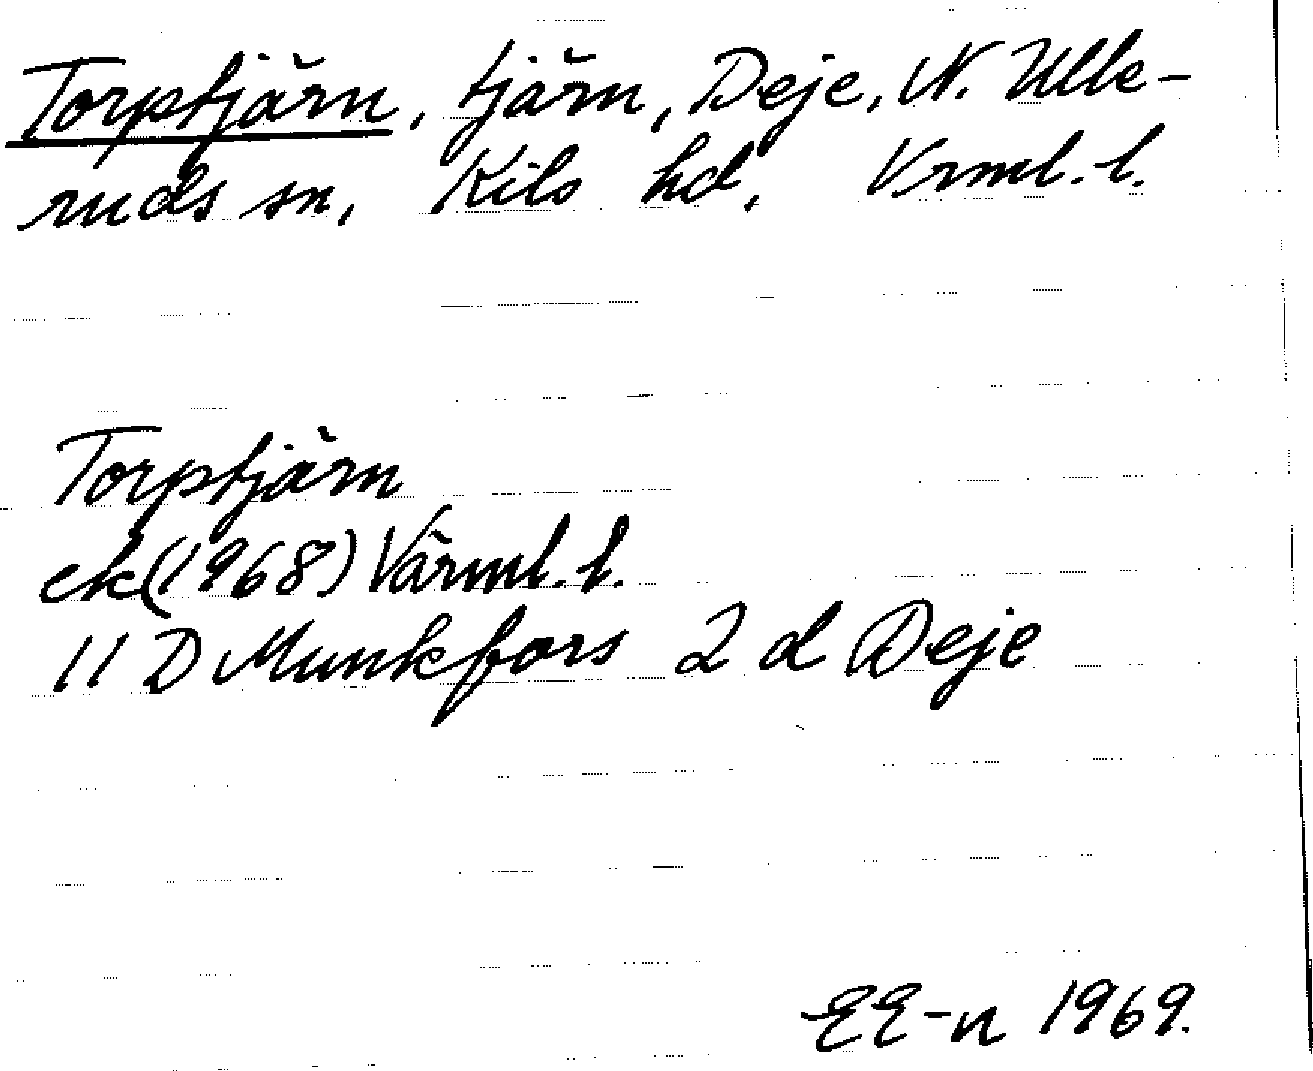 Torptjärn, tjärn, Deje, N. Ulle-
ruds sn, Kils hd, Vrml. l.
Torptjärn
ek (1968) Värml. l.
11 D Munkfors 2 d Deje
EE-n 1969.